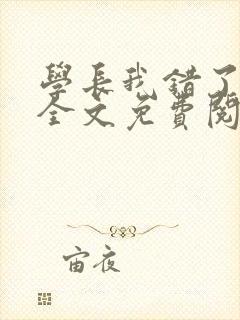 學長我錯了
全文免費閱
宙夜